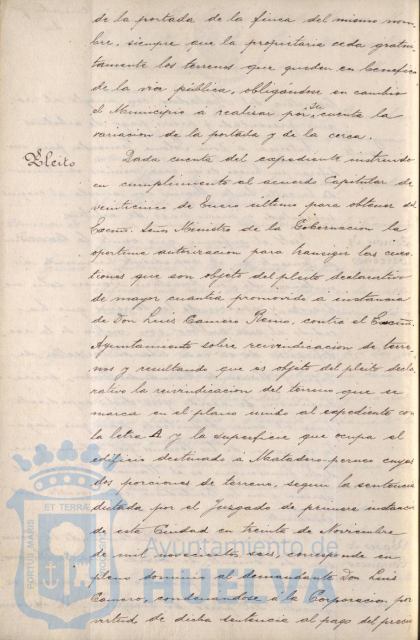 de la portada de la finca del mismo nom-
bre, siempre que la propietaria ceda gratui-
tamente los terrenos que queden en beneficio
de la via pública, obligándose en cambio
el Municipio á realizar por su cuenta la
variacion de la portada y de la cerca.
Pleito
Dada cuenta del expediente instruido
en cumplimiento al acuerdo Capitular de
veinticinco de Enero último para obtener del
Excmo. Señor Ministro de la Gobernacion la
oportuna autorizacion para transigir las cues-
tiones que son objeto del pleito declarativo
de mayor cuantía promovido á instancia
de Don Luis Camero contra el Excmo.
Ayuntamiento sobre reivindicacion de terre-
nos y resultando que es objeto del pleito decla-
rativo la reivindicacion del terreno que se
marca en el plano unido al expediente con
la letra A y la superficie que ocupa el
edificio destinado á Matadero cuyas
dos porciones de terreno, segun la sentencia
dictada por el Juzgado de primera instancia
de esta Ciudad en treinta de Noviembre
de mil novecientos seis, corresponde en
pleno dominio al demandante Don Luis
Camero, condenándose á la Corporacion por
virtud de dicha sentencia al pago del precio
PORTUS MARIS
ET TERRAE
Ayuntamiento de
HUELVA